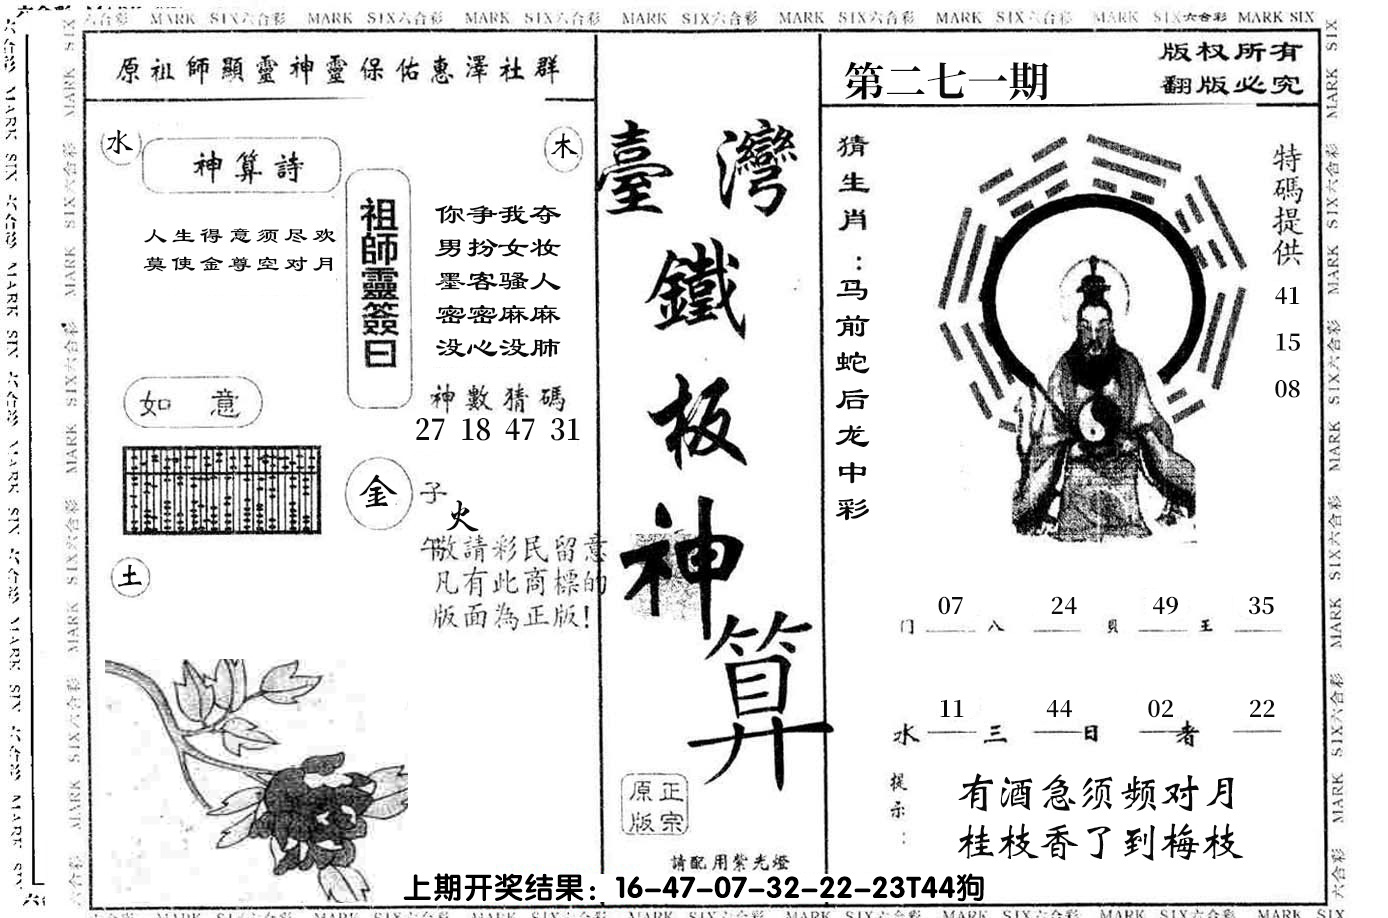 MARK SIX六合彩 MARK SIX六合彩 MARK SIX六合彩 MARK SIX六合彩 MARK SIX六合彩 MARK SIX六合彩 MARK SIX六合彩 MARK SIX
原祖師顯靈神靈保佑惠澤社群
水
神算詩
木
人生得意须尽欢
莫使金尊空对月
祖師靈簽曰
你争我夺
男扮女妆
墨客骚人
密密麻麻
没心没肺
如意
神數猜碼
27 18 47 31
金
子
火
午
敬請彩民留意
凡有此商標的
版面為正版！
土
臺灣
鐵
板
神
算
正宗
原版
請配用紫光燈
第二七一期
版权所有
翻版必究
猜生肖：马前蛇后龙中彩
特碼提供
41
15
08
07 24 49 35
门 八 貝 王
11 44 02 22
水 三 日 者
提示：
有酒急须频对月
桂枝香了到梅枝
上期开奖结果：16-47-07-32-22-23T44狗